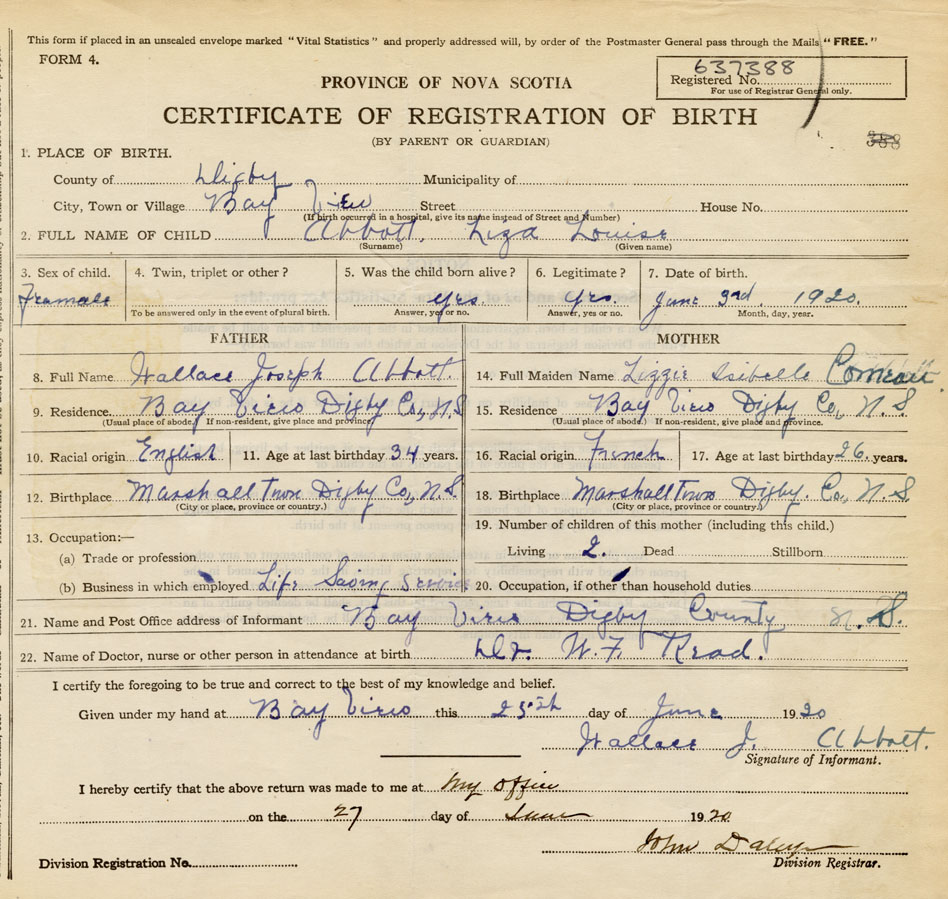 This form if placed in an unsealed envelope marked "Vital Statistics" and properly addressed will, by order of the Postmaster General pass through the Mails "FREE."
FORM 4.
637388
Registered No.
For use of Registrar General only.
PROVINCE OF NOVA SCOTIA
CERTIFICATE OF REGISTRATION OF BIRTH
(BY PARENT OR GUARDIAN)
388
1. PLACE OF BIRTH.
County of Digby Municipality of
City, Town or Village Bay View Street House No.
(If birth occurred in a hospital, give its name instead of Street and Number)
2. FULL NAME OF CHILD Abbott, Liza Louise
(Surname) (Given name)
3. Sex of child. 4. Twin, triplet or other? 5. Was the child born alive? 6. Legitimate? 7. Date of birth.
Framale yes yes. June 3rd. 1920.
To be answered only in the event of plural birth. Answer, yes or no. Answer, yes or no. Month, day, year.
FATHER MOTHER
8. Full Name Wallace Joseph Abbott. 14. Full Maiden Name Lizzie Isibelle Comeau
9. Residence Bay View Digby Co, N.S 15. Residence Bay View Digby Co, N.S
(Usual place of abode.) If non-resident, give place and province. (Usual place of abode.) If non-resident, give place and province.
10. Racial origin English 11. Age at last birthday 34 years. 16. Racial origin French 17. Age at last birthday 26. years.
12. Birthplace Marshall Town Digby Co, N.S. 18. Birthplace Marshall Town Digby. Co, N.S
(City or place, province or country.) (City or place, province or country.)
13. Occupation:— 19. Number of children of this mother (including this child.)
(a) Trade or profession Living 2. Dead Stillborn
(b) Business in which employed Life Saving Service 20. Occupation, if other than household duties
21. Name and Post Office address of Informant Bay View Digby County N.S.
22. Name of Doctor, nurse or other person in attendance at birth Dr. W.F. Read.
I certify the foregoing to be true and correct to the best of my knowledge and belief.
Given under my hand at Bay View this 25th day of June 1920
Wallace J. Abbott.
Signature of Informant.
I hereby certify that the above return was made to me at My Office
on the 27 day of June 1920
John Daley
Division Registration No. Division Registrar.